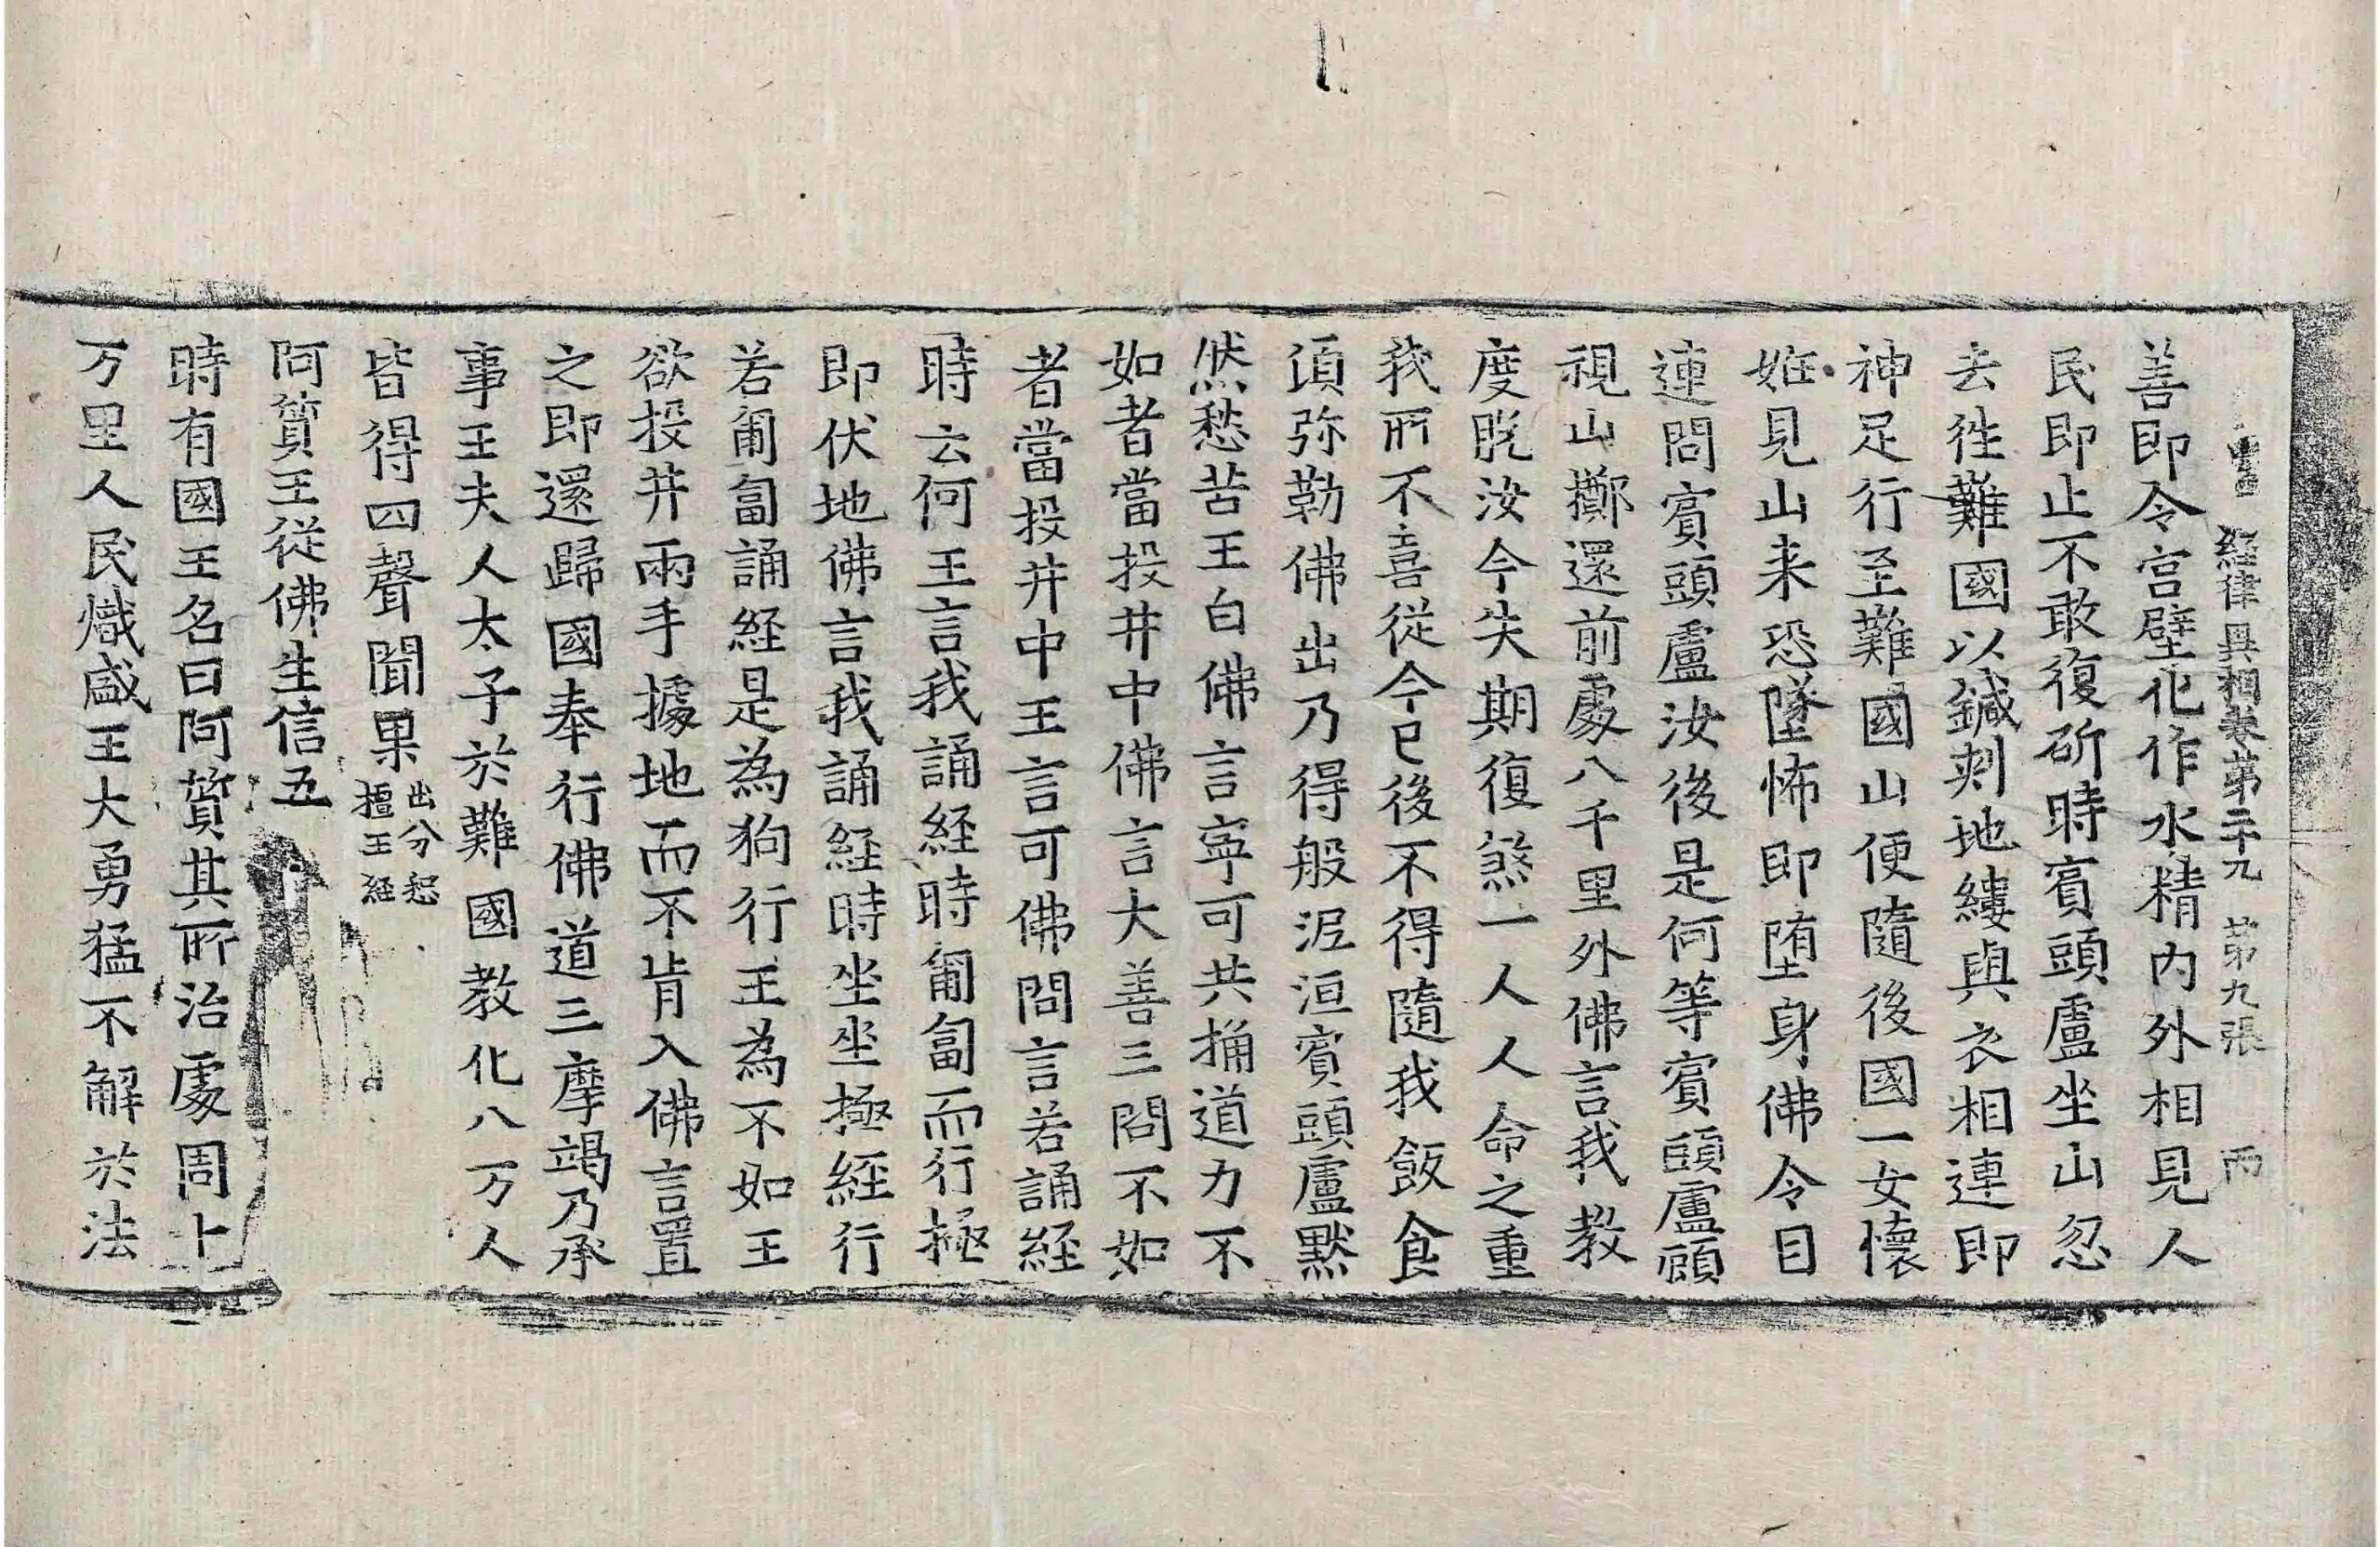 經律異相卷第二十九 第九張 丙
善即令宫壁化作水精内外相見人
民即止不敢復斫時賓頭盧坐山忍
去徃難國以鍼刾地縷與衣相連即
神足行至難國山便隨後國一女懷
姙見山来恐墜怖即堕身佛令目
連問賓頭盧汝後是何等賓頭盧顧
視山擲還前處八千里外佛言我教
度旣汝今失期復煞一人人命之重
我所不喜従今已後不得隨我飯食
湏弥勒佛出乃得般泥洹賓頭盧黙
然愁苦王白佛言寧可共捔道力不
如者當投井中佛言大善三問不如
者當投井中王言可佛問言若誦経
時云何王言我誦経時匍匐而行極
即伏地佛言我誦経時坐坐極経行
若匍匐誦経是為狗行王為不如王
欲投井兩手據地而不肯入佛言置
之即還歸國奉行佛道三摩竭乃承
事王夫人太子於難國教化八万人
皆得四聲聞果出分惒檀王経
阿質王従佛生信五
時有國王名曰阿質其所治處周上
万里人民熾盛王大勇猛不解於法